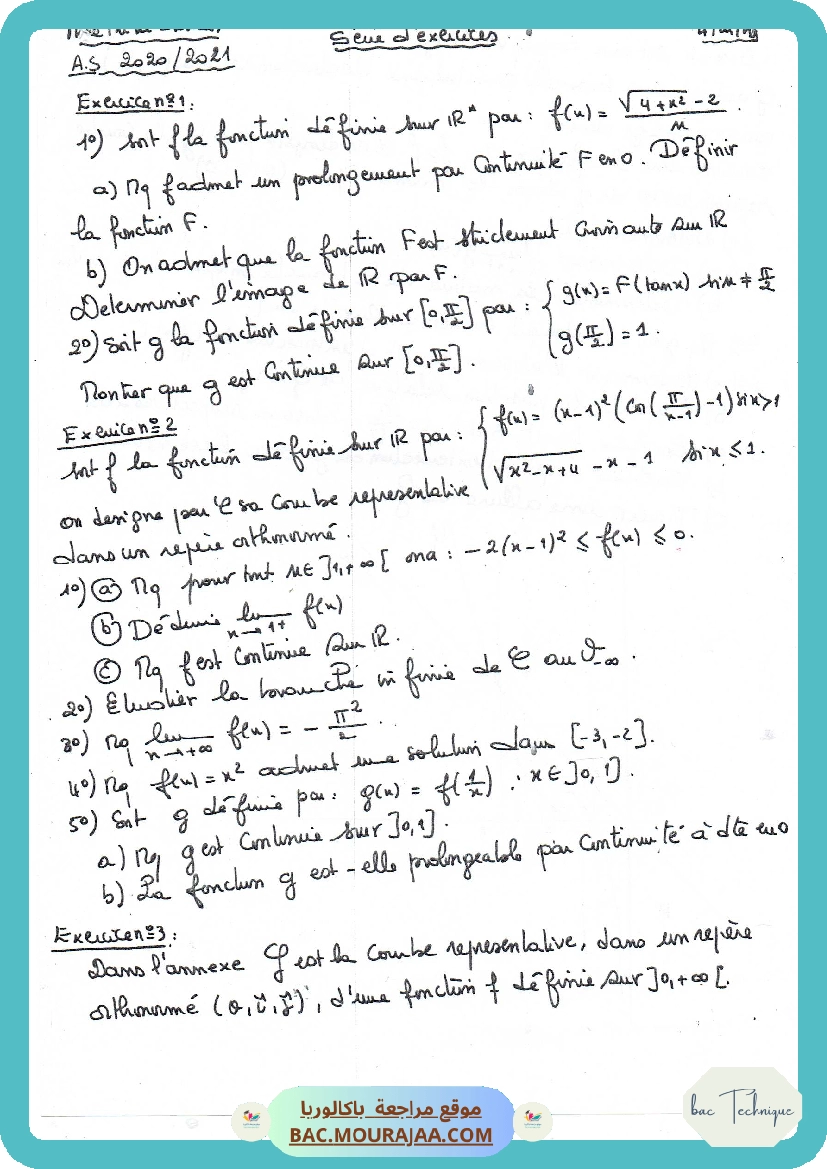 Serie d'exercices
A.S 2020/2021
Exercice n°1:
1°) Soit f la fonction définie sur IR* par : f(x) = (√(4+x²) - 2)/x .
a) Mq f admet un prolongement par Continuité F en 0. Définir
la fonction F.
b) On admet que la fonction F est strictement croissante sur IR
Determiner l'image de IR par F.
2°) Soit g la fonction définie sur [0,π/2] par : { g(x) = F(tanx) si x ≠ π/2
g(π/2) = 1.
Montrer que g est Continue sur [0,π/2].
Exercice n°2
Soit f la fonction définie sur IR par : { f(x) = (x-1)² (Cos(π/(x-1)) -1) si x>1
√(x²-x+4) - x - 1 si x ≤ 1.
on designe par C sa Courbe representative
dans un repère orthonormé.
1°) a) Mq pour tout x∈]1,+∞[ on a : -2(x-1)² ≤ f(x) ≤ 0.
b) Déduire lim x→1+ f(x)
c) Mq f est Continue sur IR.
2°) Etudier la branche infinie de C au V-∞ .
3°) Mq lim x→+∞ f(x) = - π²/2 .
4°) Mq f(x) = x² admet une solution dans [-3,-2].
5°) Soit g définie par : g(x) = f(1/x) ; x∈]0,1].
a) Mq g est Continue sur ]0,1].
b) La fonction g est-elle prolongeable par Continuité à dte en 0
Exercice n°3:
Dans l'annexe Cf est la Courbe representative, dans un repère
orthonormé (o,i,j), d'une fonction f définie sur ]0,+∞[.
موقع مراجعة باكالوريا
BAC.MOURAJAA.COM
bac Technique